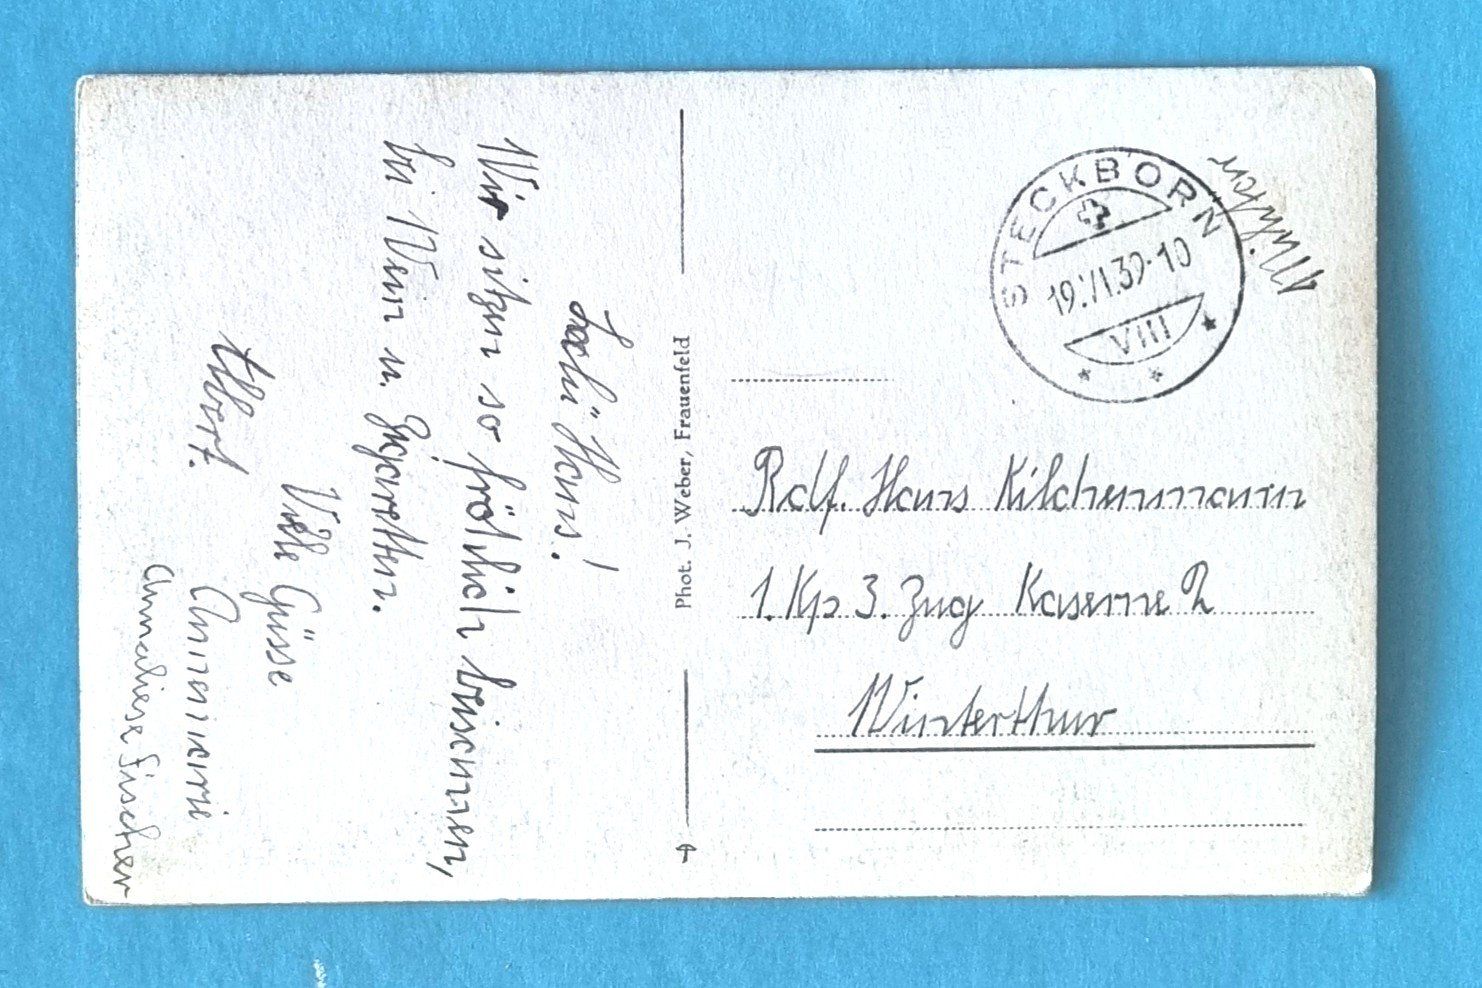 Salü Hans!
Wir sitzen so fröhlich beisamen,
bei Wein u. Zigaretten.
Viele Grüsse
Albert.
Annemarie
Annaliese Fischer
Phot. J. Weber, Frauenfeld
Militär
STECKBORN
19.VI.39-10
VIII
Hans Kilchenmann
1. Kp 3. Zug Kaserne 2
Winterthur